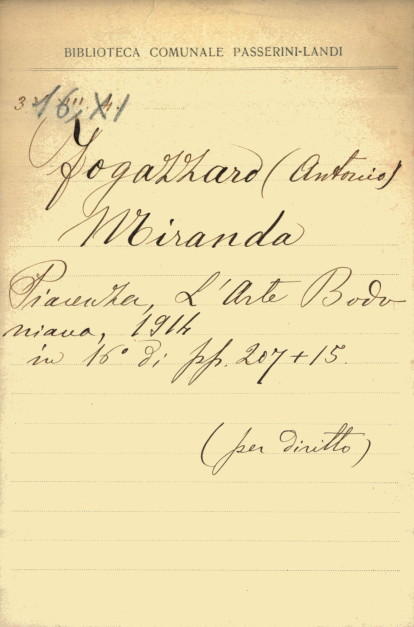 BIBLIOTECA COMUNALE PASSERINI-LANDI
16, XI
Fogazzaro (Antonio)
Miranda
Piacenza, L'Arte Bodo
niana, 1914
in 16° di pp. 207+15.
(per diritto)